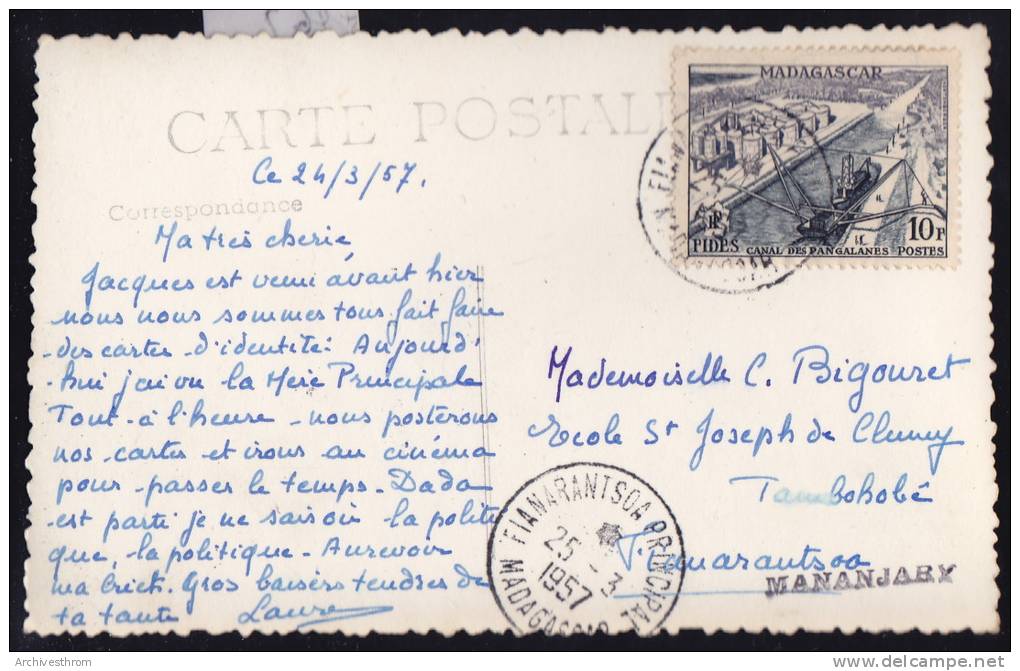 CARTE POSTALE
Ce 24/3/57.
Correspondance
Ma très cherie
Jacques est venu avant hier
nous nous sommes tous fait faire
des cartes d'identité. Aujourd'
hui j'ai vu la Mère Principale
Tout à l'heure nous posterons
nos cartes et irons au cinéma
pour passer le temps. Dada
est parti je ne sais où la politi
que, la politique. Aurevoir
ma Crick. Gros baisers tendres de
ta tante Laure
MADAGASCAR
RF
FIDES CANAL DES PANGALANES POSTES
10F
Mademoiselle C. Bigouret
Ecole St Joseph de Cluny
Tambohobé
Fianarantsoa
MANANJARY
FIANARANTSOA PRINCIPAL
25 - 3
1957
MADAGASCAR
Archivesthrom
delcampe.net